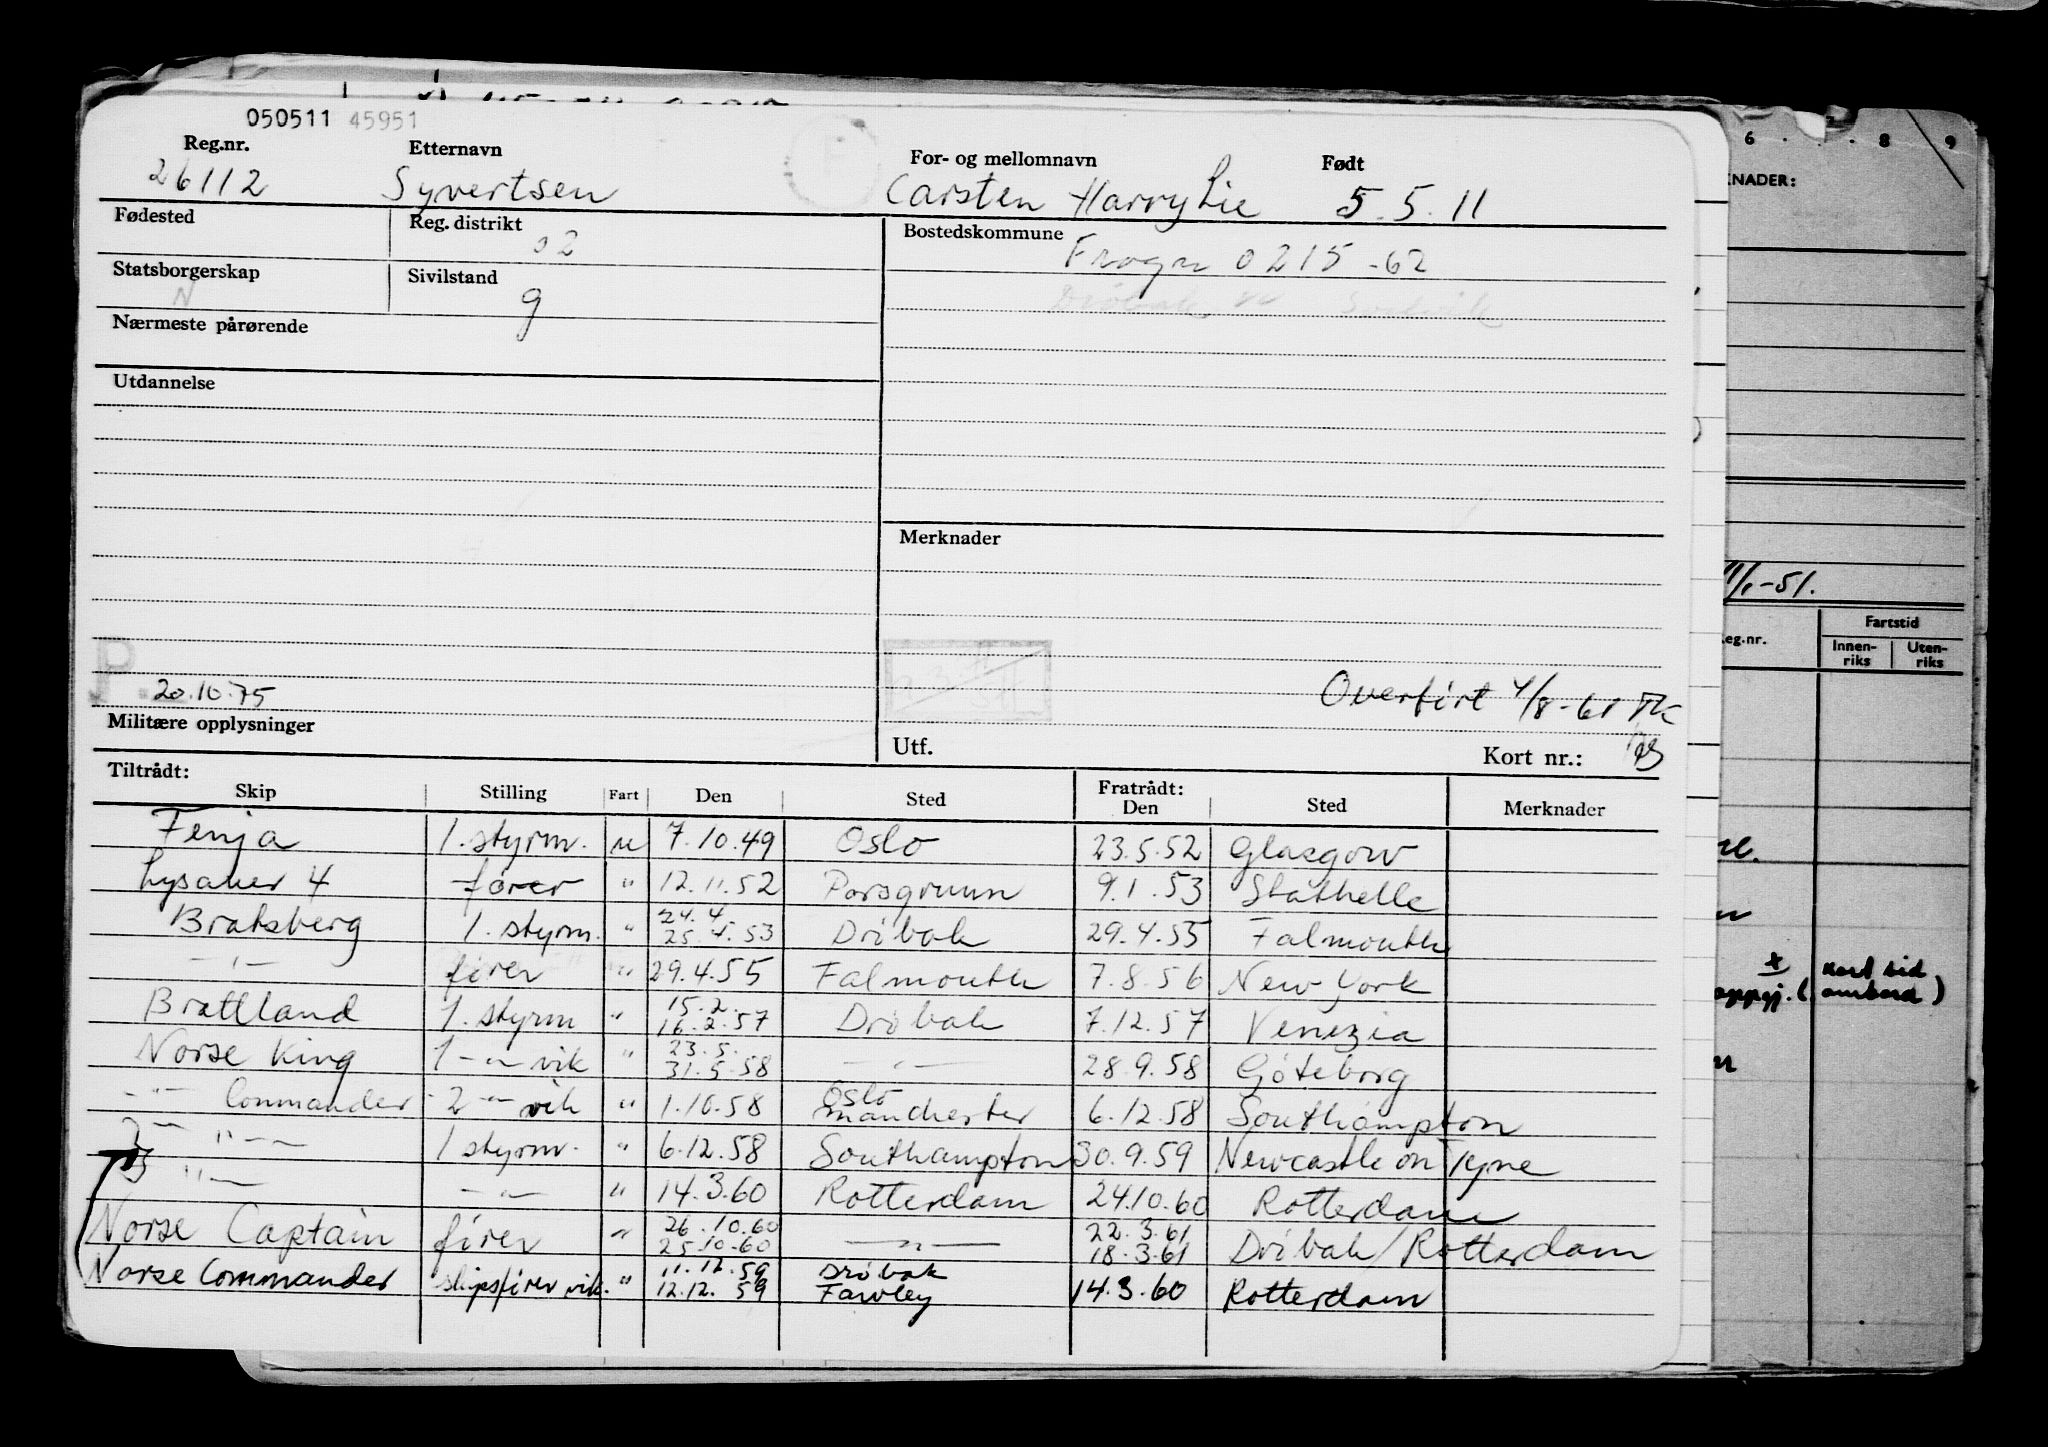 050511 45951
Reg.nr. Etternavn For- og mellomnavn Født
26112 Syvertsen Carsten Harry Lie 5.5.11
Fødested Reg. distrikt Bostedskommune
02 Frogn 0215-62
Statsborgerskap Sivilstand
N g
Drøbak
Nærmeste pårørende
Utdannelse
Merknader
P.
20.10.75
Overført 4/8-61
Militære opplysninger Utf. Kort nr.:
Tiltrådt: Fratrådt:
Skip Stilling Fart Den Sted Den Sted Merknader
Fenja 1. styrm. u 7.10.49 Oslo 23.5.52 Glasgow
Lysaker 4 fører " 12.11.52 Porsgrunn 9.1.53 Stathelle
Bratsberg 1. styrm. " 24.4. 25.4.53 Drøbak 29.4.55 Falmouth
-"- fører " 29.4.55 Falmouth 7.8.56 New York
Brattland 1. styrm " 15.2. 16.2.57 Drøbak 7.12.57 Venezia
Norse King 1 -"- vik " 23.5. 31.5.58 -"- 28.9.58 Göteborg
-"- Commander 2 -"- vik " 1.10.58 Oslo Manchester 6.12.58 Southampton
-"- "-- 1 styrm. " 6.12.58 Southampton 30.9.59 Newcastle on Tyne
"-- -"- " 14.3.60 Rotterdam 24.10.60 Rotterdam
Norse Captain fører " 26.10.60 25.10-60 -"- 22.3.61 18.3.61 Drøbak/Rotterdam
Norse Commander skipsfører vik. " 11.12.59 12.12.59 Drøbak Fawley 14.3.60 Rotterdam
6 . . . 8 9
KNADER:
-51.
eg.nr. Fartstid
Innen-riks Uten-riks
ombord)